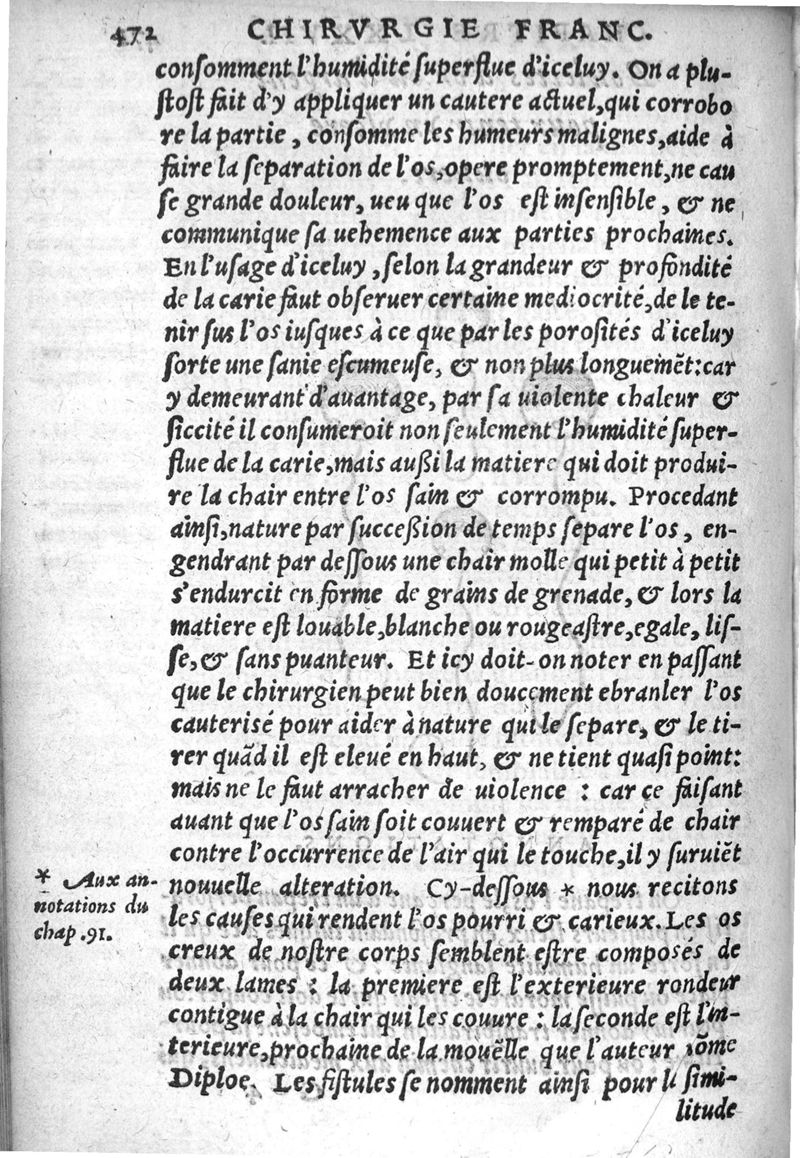 472 CHIRVRGIE FRANC.
conſomment l'humidité ſuperflue d'iceluy. On a plu-
ſtoſt fait d'y appliquer un cautere actuel, qui corrobo
re la partie, conſomme les humeurs malignes, aide à
faire la ſeparation de l'os, opere promptement, ne cau
ſe grande douleur, ueu que l'os eſt inſenſible, & ne
communique ſa uehemence aux parties prochaines.
En l'uſage d'iceluy, ſelon la grandeur & profondité
de la carie faut obſeruer certaine mediocrité, de le te-
nir ſus l'os iuſques à ce que par les poroſités d'iceluy
ſorte une ſanie eſcumeuſe, & non plus longuemẽt: car
y demeurant d'auantage, par ſa uiolente chaleur &
ſiccité il conſumeroit non ſeulement l'humidité ſuper-
flue de la carie, mais außi la matiere qui doit produi-
re la chair entre l'os ſain & corrompu. Procedant
ainſi, nature par ſucceßion de temps ſepare l'os, en-
gendrant par deſſous une chair molle qui petit à petit
s'endurcit en forme de grains de grenade, & lors la
matiere eſt louable, blanche ou rougeaſtre, egale, liſ-
ſe, & ſans puanteur. Et icy doit-on noter en paſſant
que le chirurgien peut bien doucement ebranler l'os
cauteriſé pour aider à nature qui le ſepare, & le ti-
rer quãd il eſt eleué en haut, & ne tient quaſi point:
mais ne le faut arracher de uiolence : car ce faiſant
auant que l'os ſain ſoit couuert & remparé de chair
contre l'occurrence de l'air qui le touche, il y ſuruiẽt
nouuelle alteration. Cy-deſſous * nous recitons
* Aux an-
notations du
chap .91.
les cauſes qui rendent l'os pourri & carieux. Les os
creux de noſtre corps ſemblent eſtre compoſés de
deux lames : la premiere eſt l'exterieure rondeur
contigue à la chair qui les couure : la ſeconde eſt l'in-
terieure, prochaine de la mouẽlle que l'auteur nõme
Diploe. Les fiſtules ſe nomment ainſi pour la ſimi-
litude